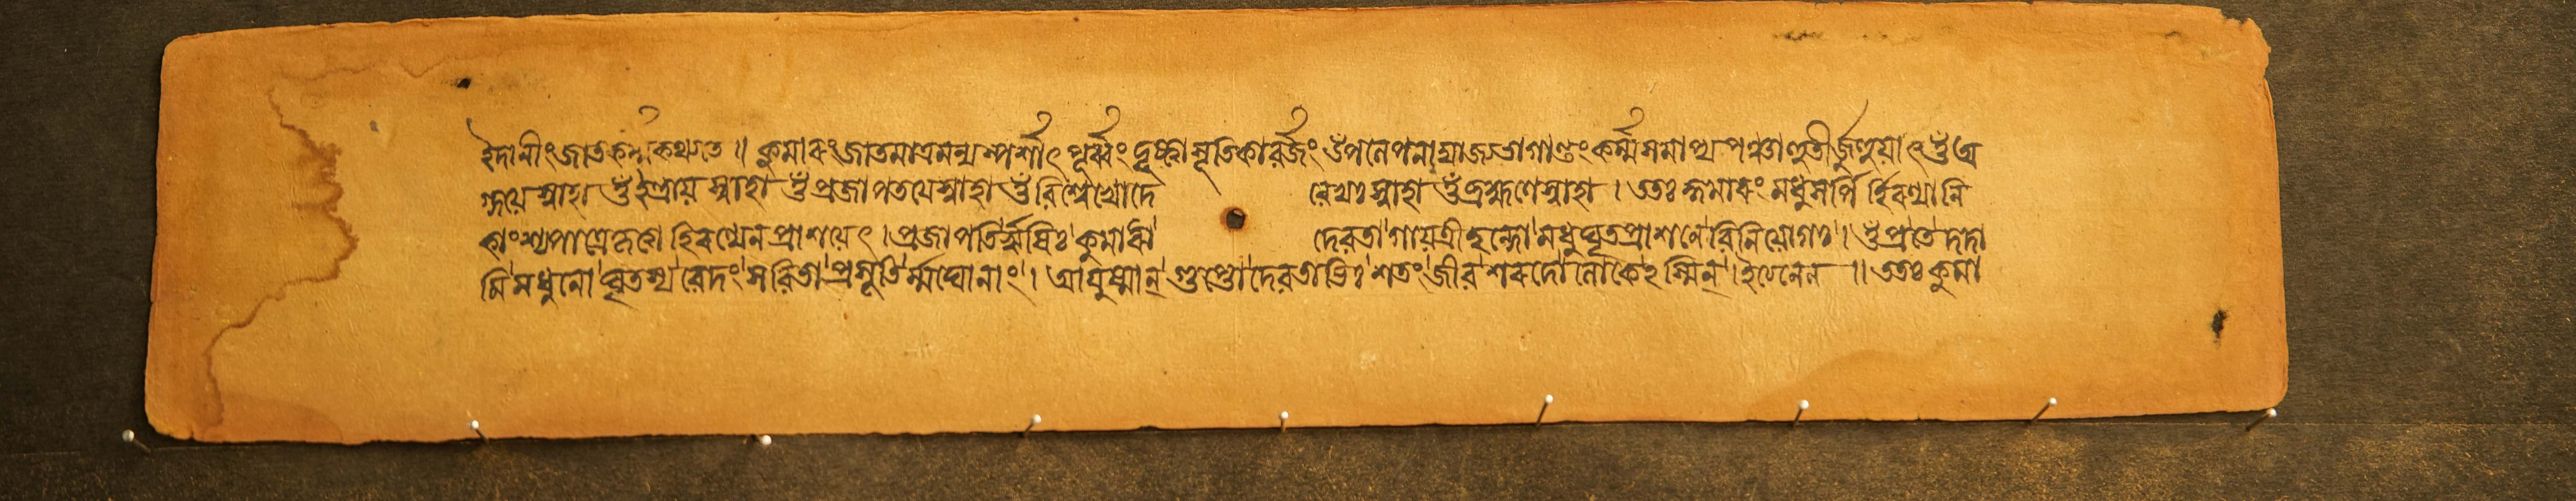 ইদানীং জাতকর্ম্মকথ্যতে ॥ কুমাৰং জাতমাত্রমন্যস্পর্শাৎ পূর্ব্বং দৃষ্ট্বা সূতিকাৱর্জং উপলেপনাদ্যাজ্যভাগান্তং কর্ম্ম সমাপ্য পঞ্চাহুতীর্জুহুয়াৎ ওঁ অ
গ্নয়ে স্বাহা ওঁ ইন্দ্রায় স্বাহা ওঁ প্রজাপতয়ে স্বাহা ওঁ ৱিশ্বেভ্যো দে ৱেভ্যঃ স্বাহা ওঁ ব্রহ্মণে স্বাহা । ততঃ কুমাৰং মধুসর্পি র্হিৰণ্যানি
কাংশ্যপাত্রে হিৰণ্যেন প্রাশয়েৎ । প্রজাপতির্ঋষিঃ কুমাৰো দেৱতা গায়ত্রী ছন্দো মধুঘৃতপ্রাশনে ৱিনিয়োগঃ । ওঁ প্র তে দদা
মি মধুনো ঘৃতস্য ৱেদং সৱিতা প্রসূতির্ম্মঘোনাং । আয়ুষ্মান্ গুপ্তো দেৱতাভিঃ শতং জীৱ শৰদো লোকেঽস্মিন্ । ইত্যনেন ॥ ততঃ কুমা